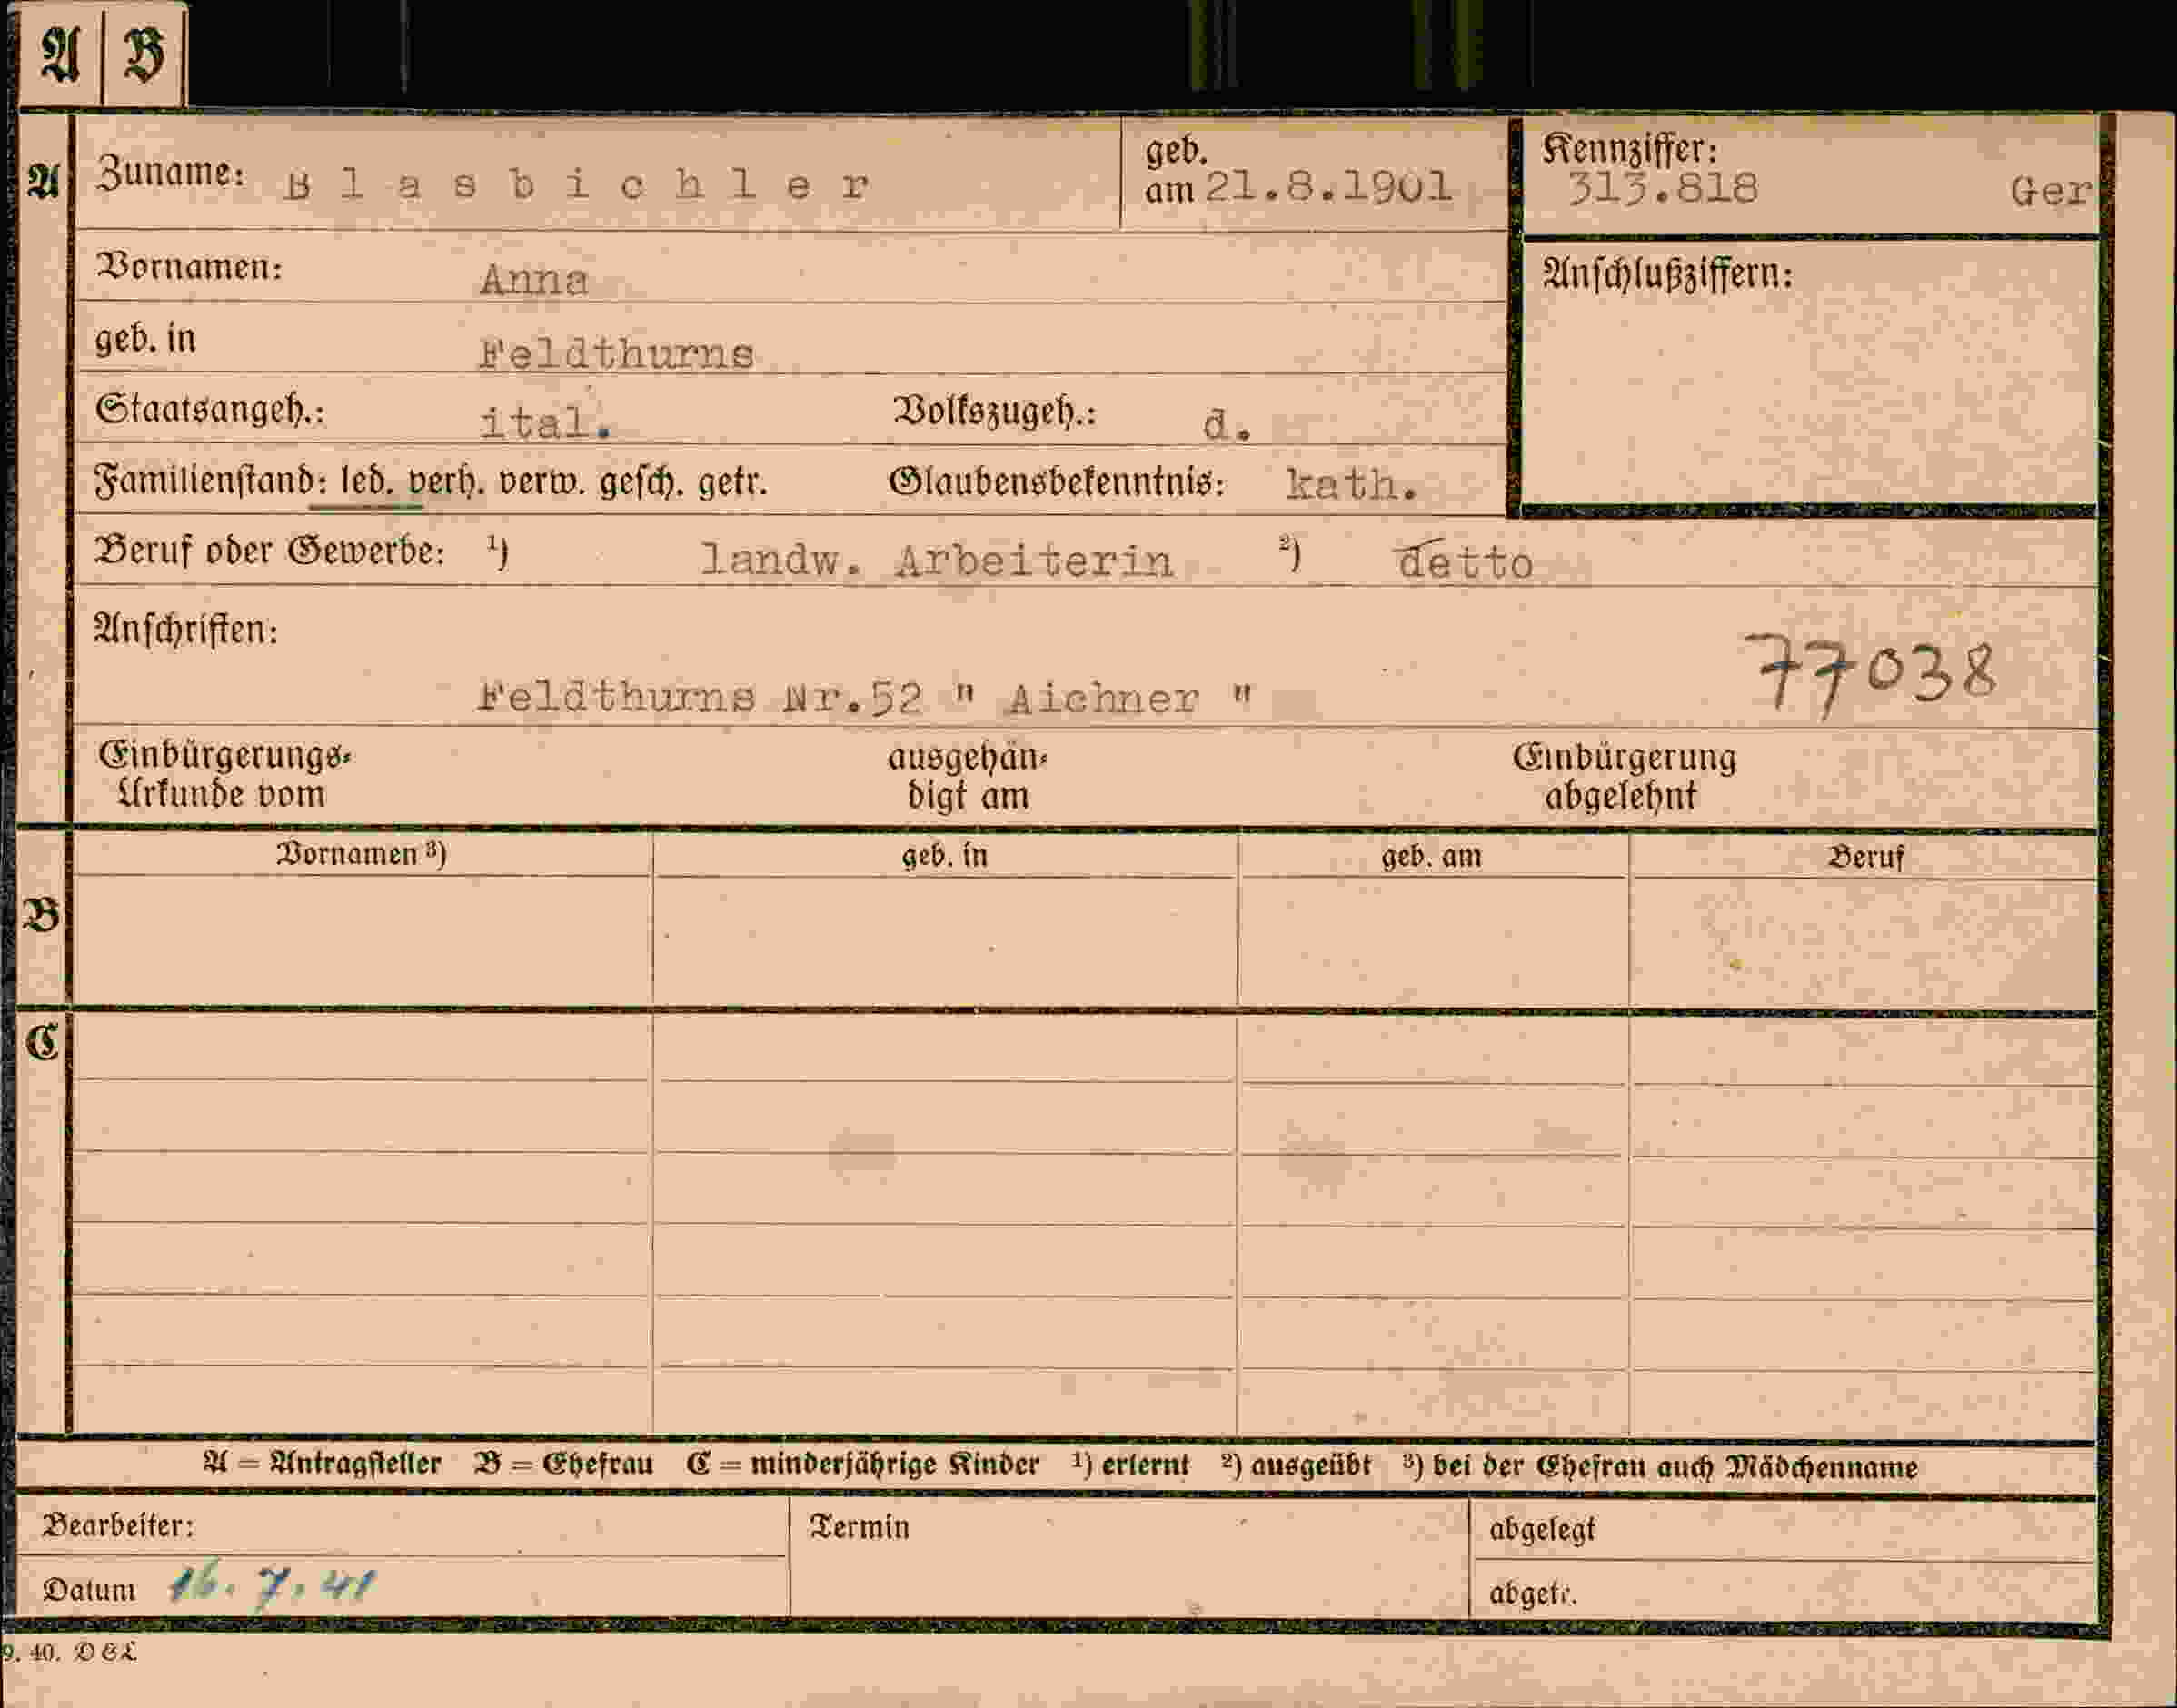 A B
A Zuname: Blasbichler geb. am 21.8.1901 Kennziffer: 313.818 Ger
Vornamen: Anna Anschlußziffern:
geb. in Feldthurns
Staatsangeh.: ital. Volkszugeh.: d.
Familienstand: led. verh. verw. gesch. getr. Glaubensbekenntnis: kath.
Beruf oder Gewerbe: ¹) landw. Arbeiterin ²) detto
Anschriften:
77038
Feldthurns Nr.52 " Aichner "
Einbürgerungs- ausgehän- Einbürgerung
Urkunde vom digt am abgelehnt
Vornamen ³) geb. in geb. am Beruf
B
C
A = Antragsteller B = Ehefrau C = minderjährige Kinder ¹) erlernt ²) ausgeübt ³) bei der Ehefrau auch Mädchenname
Bearbeiter: Termin abgelegt
Datum 16. 7. 41 abgetr.
9. 40. DEL